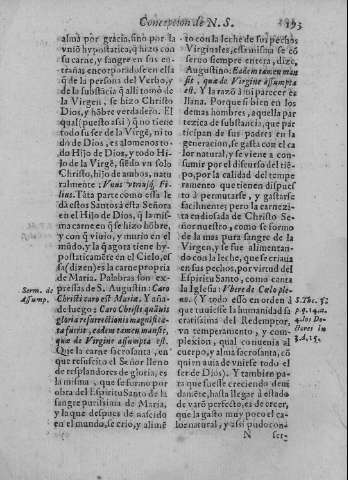 Concepcion de N. S.
193
alma por gracia, sino por la
vnió hypostatica, q̃ hizo con
su carne, y sangre en sus en-
trañas encorporadose en ella
q̃ de la persona del Verbo, y
de la substácia q̃ alli tomó de
la Virgen, se hizo Christo
Dios, y hóbre verdadero. El
qual (puesto assi) q̃ no tiene
todo su ser de la Virgẽ, ni to
do de Dios, es alomenos to-
do Hijo de Dios, y todo Hi-
jo de la Virgẽ, siẽdo vn solo
Christo, hijo de ambos, natu
ralmente: Vnus vtriusq̃, Fi-
lius. Táta parte como essa le
dá estos Santos à esta Señora
en el Hijo de Dios, q̃ la mis-
ma carne en q̃ se hizo hóbre,
y con q̃ viuio, y murio en el
múdo, y la q̃ agora tiene hy-
postaticamẽte en el Cielo, es
sẽ (dizen) es la carne propria
de Maria. Palabras son ex-
pressas de S. Augustin: Caro
Christi caro est Mariæ. Y aña-
de luego: Caro Christi quáuis
gloria resurrectionis magnifica-
ta fuerit, eadem tamen mansit,
quæ de Virgine assumpta est.
Que la carne sacrosanta, en
que resuscitò el Señor lleno
de resplandores de gloria, es
la misma, que se formo por
obra del Espiritu Santo de la
sangre purissima de Maria,
y la que despues de nascido
en el mundo, se crio, y alimẽ
Serm. de
Assump.
to con la leche de sus pechos
Virginales, essa misma se cõ
seruo siempre entera, dize,
Augustino: Eadem tamen man
sit, quæ de Virgine assumpta
est. Y la razó á mi parecer es
llana. Porque si bien en los
demas hombres, aquella par
tezica de substancia, que par
ticipan de sus padres en la
generacion, se gasta con el ca
lor natural, y se viene a con-
sumir por el discurso del tiẽ-
po, por la calidad del tempe
ramento que tienen dispues
to à permutarse, y gastarse
facilmente; pero la carnezi-
ta endiosada de Christo Se-
ñor nuestro, como se formo
de la mas pura sangre de la
Virgen, y se fue alimentan-
do con la leche, que se criaua
en sus pechos, por virtud del
Espiritu Santo, como canta
la Iglesia: Vbere de Cœlo ple-
no. (Y todo esso en orden à
que tuuiesse la humanidad sa
cratissima del Redemptor,
vn temperamento, y com-
plexion, qual conuenia al
cuerpo, y alma sacrosanta, có
quien auia de vnirse todo el
ser de Dios). Y tambien pa-
ra que fuesse creciendo deui
damẽte, hasta llegar à estado
de varó perfecto, es de creer,
que la gasto muy poco el ca-
lor natural, y assi pudo con-
S. Tho. 3.
N
ser-